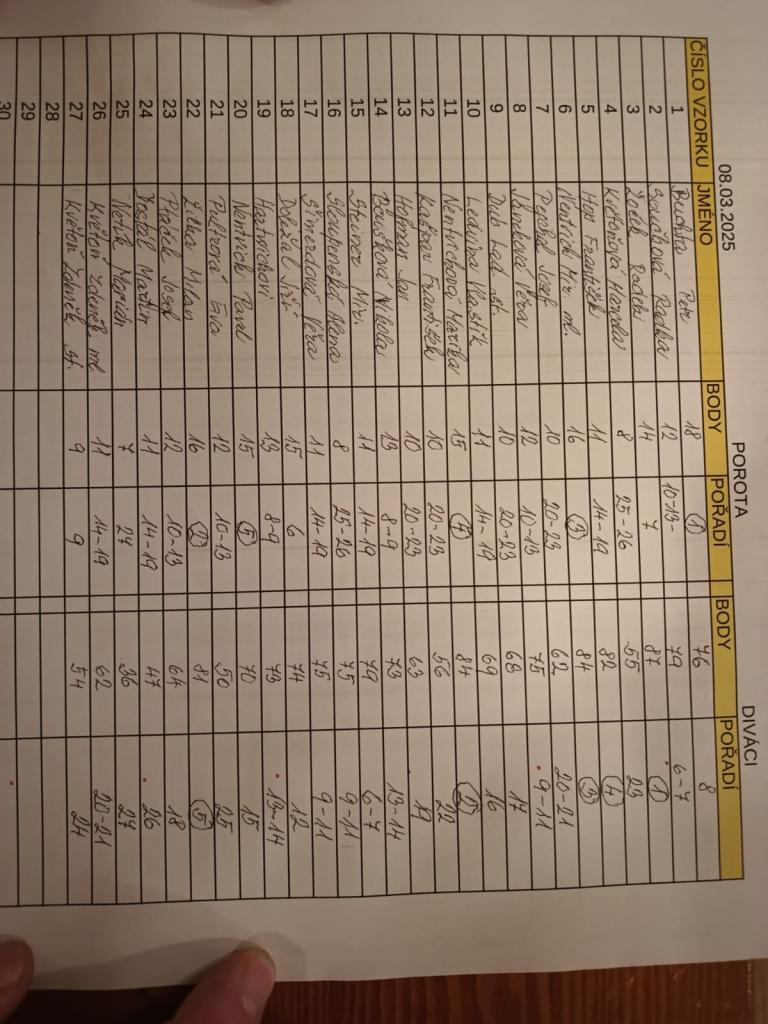 08.03.2025 POROTA DIVÁCI
ČÍSLO VZORKU JMÉNO BODY POŘADÍ BODY POŘADÍ
1 Buchta Petr 18 1 76 8
2 Součková Radka 12 10-13- 79 6-7
3 Radek 14 7 87 1
4 Květoňová 8 25-26 55 23
5 Hos František 11 14-19 82 4
6 Nentvich Mir. ml. 16 3 84 3
7 Josef 10 20-23 62 20-21
8 Věra 12 10-13 75 9-11
9 Dub Lad. st. 10 20-23 68 17
10 Ledvina Vlastik 11 14-19 69 16
11 Nentvichová Marika 15 4 84 2
12 Kašpar František 10 20-23 56 22
13 Hofman Jan 10 20-23 63 19
14 Boušková Nikola 13 8-9 73 13-14
15 Steiner Mir. 11 14-19 79 6-7
16 Sloupenská Alena 8 25-26 75 9-11
17 Šimerdová Věra 11 14-19 75 9-11
18 Doležal Jiří 15 6 74 12
19 Hartwichovi 13 8-9 73 13-14
20 Nentvich Pavel 15 5 70 15
21 Pultrová Eva 12 10-13 50 25
22 Žilka Milan 16 2 81 5
23 Ptáček Josef 12 10-13 64 18
24 Dostál Martin 11 14-19 47 26
25 Netík Marián 7 27 36 27
26 Květoň Zdeněk ml 11 14-19 62 20-21
27 Květoň Zdeněk st. 9 9 54 24
28
29
30